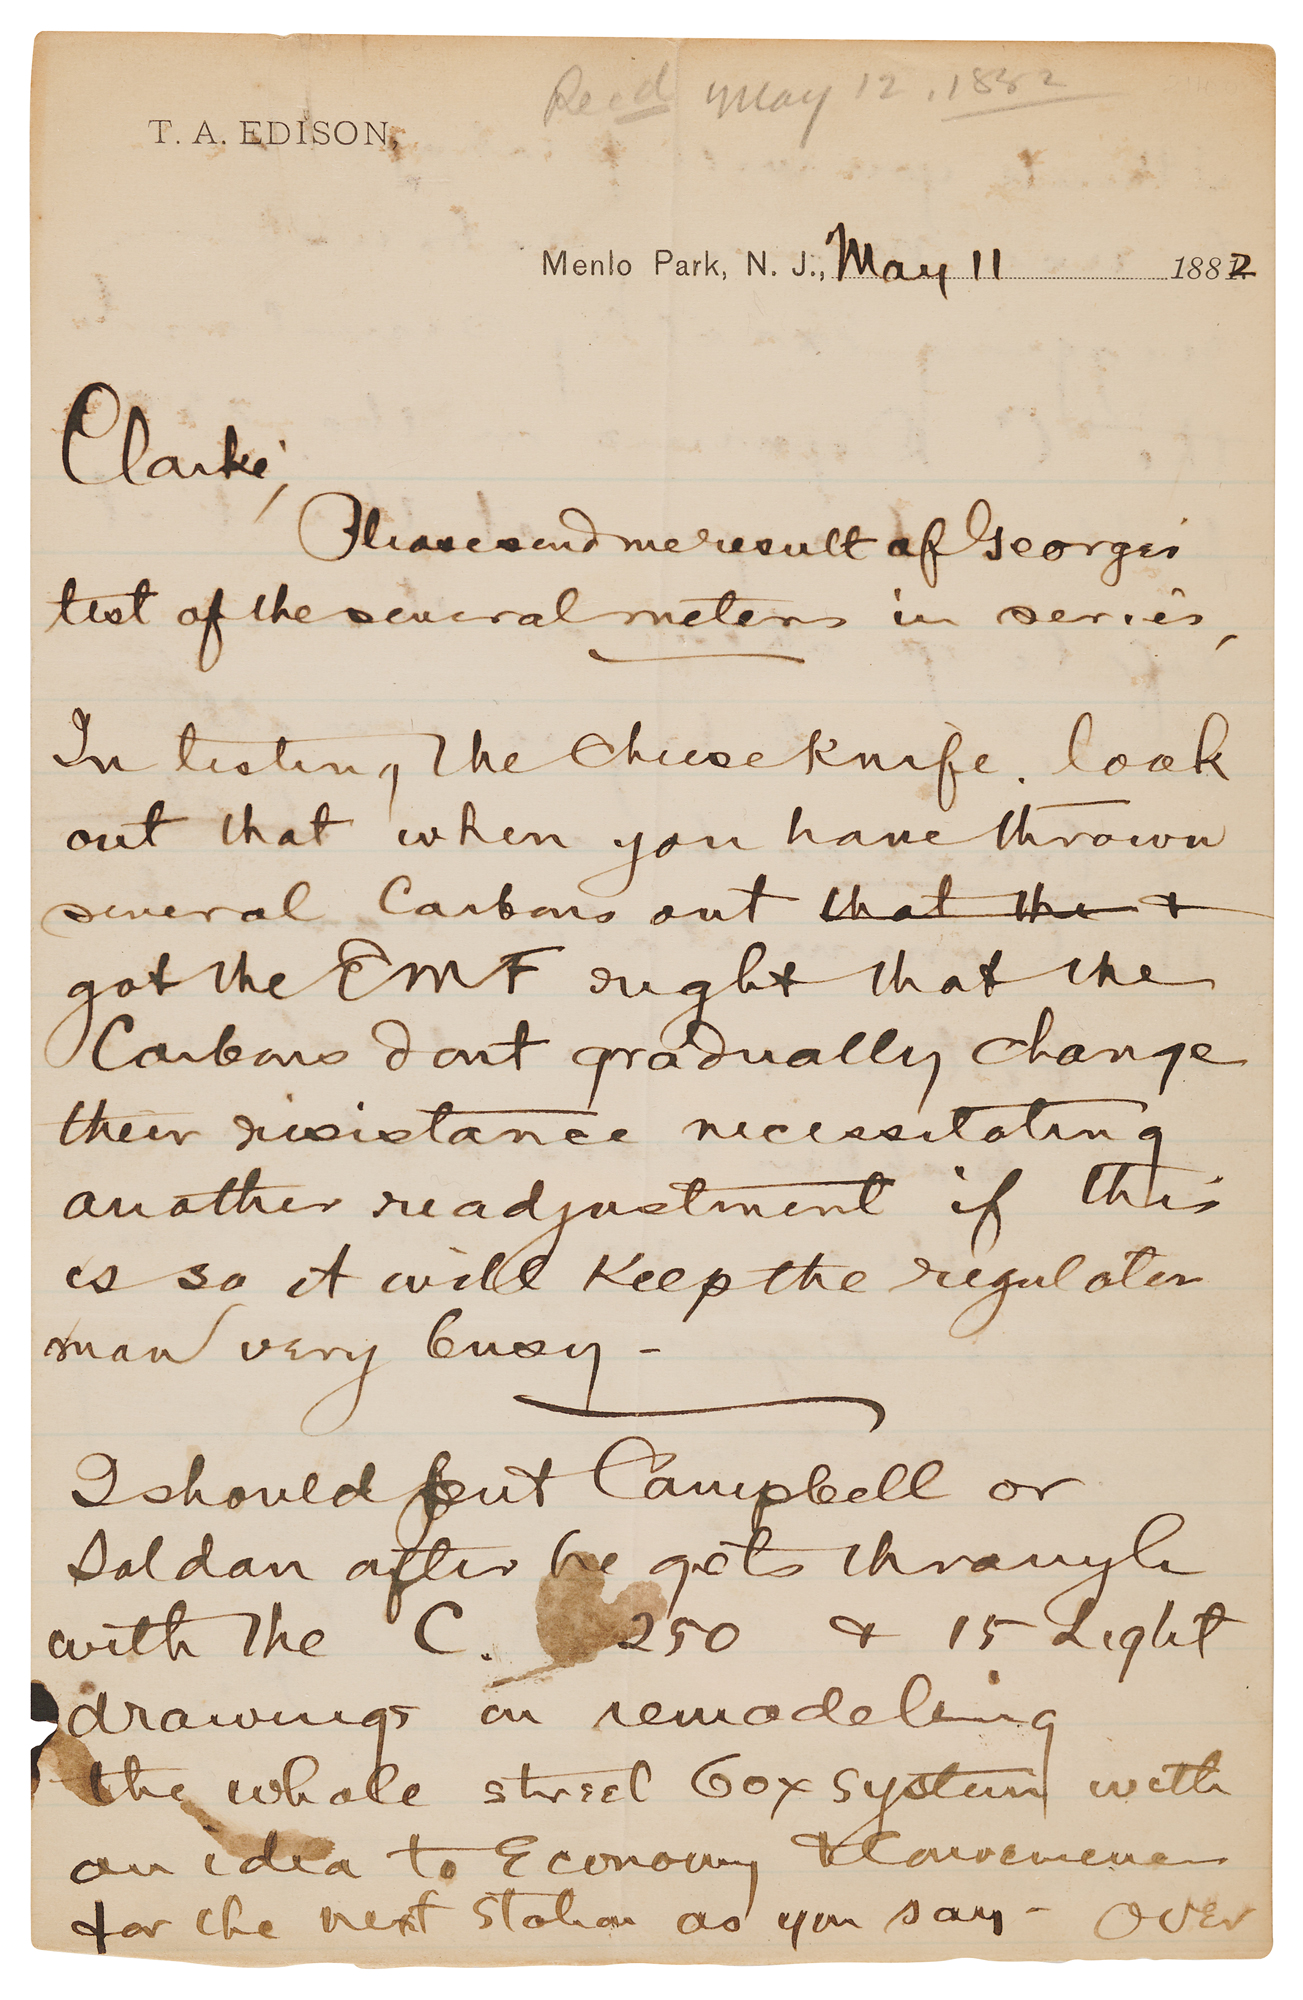 Recd May 12, 1882
T. A. EDISON,
Menlo Park, N. J., May 11 1882
Clarke,
Please send me result of Georges
test of the several meters in series,
In testing the Cheese Knife. look
out that when you have thrown
several Carbons out that the &
got the EMF right that the
Carbons dont gradually change
their resistance necessitating
another readjustment if this
is so it will Keep the regulator
man very busy -
I should put Campbell or
Soldan after he gets through
with the C. 250 & 15 Light
drawings on remodeling
the whole street Box system with
an idea to Economy & Convenience
for the next Station as you say - OVER